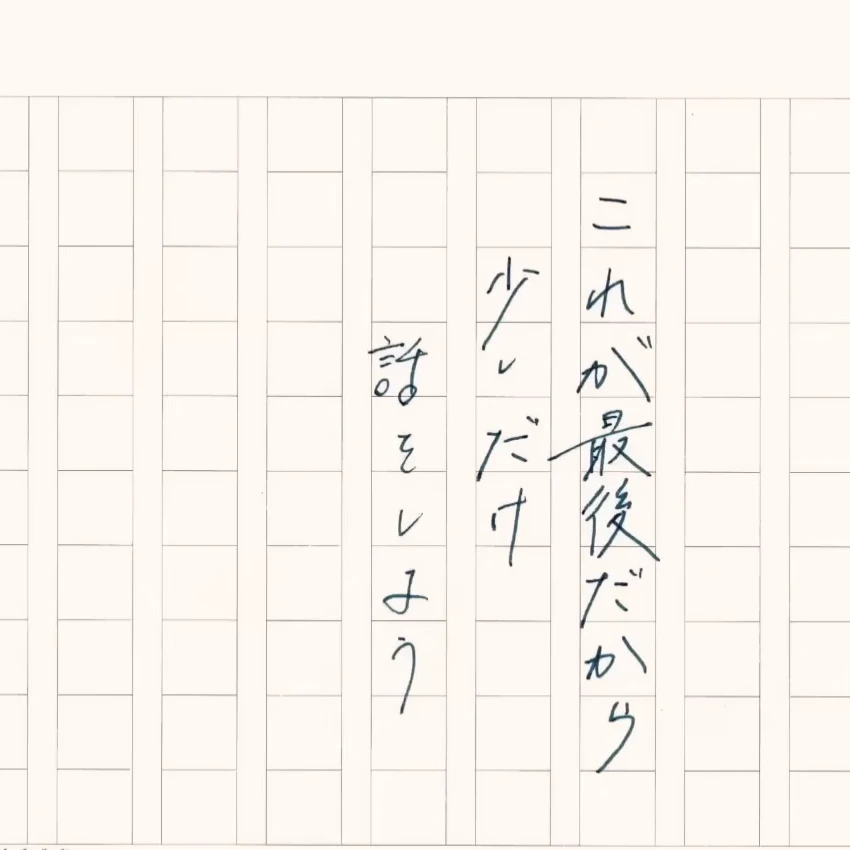 これが最後だから
少しだけ
話をしよう